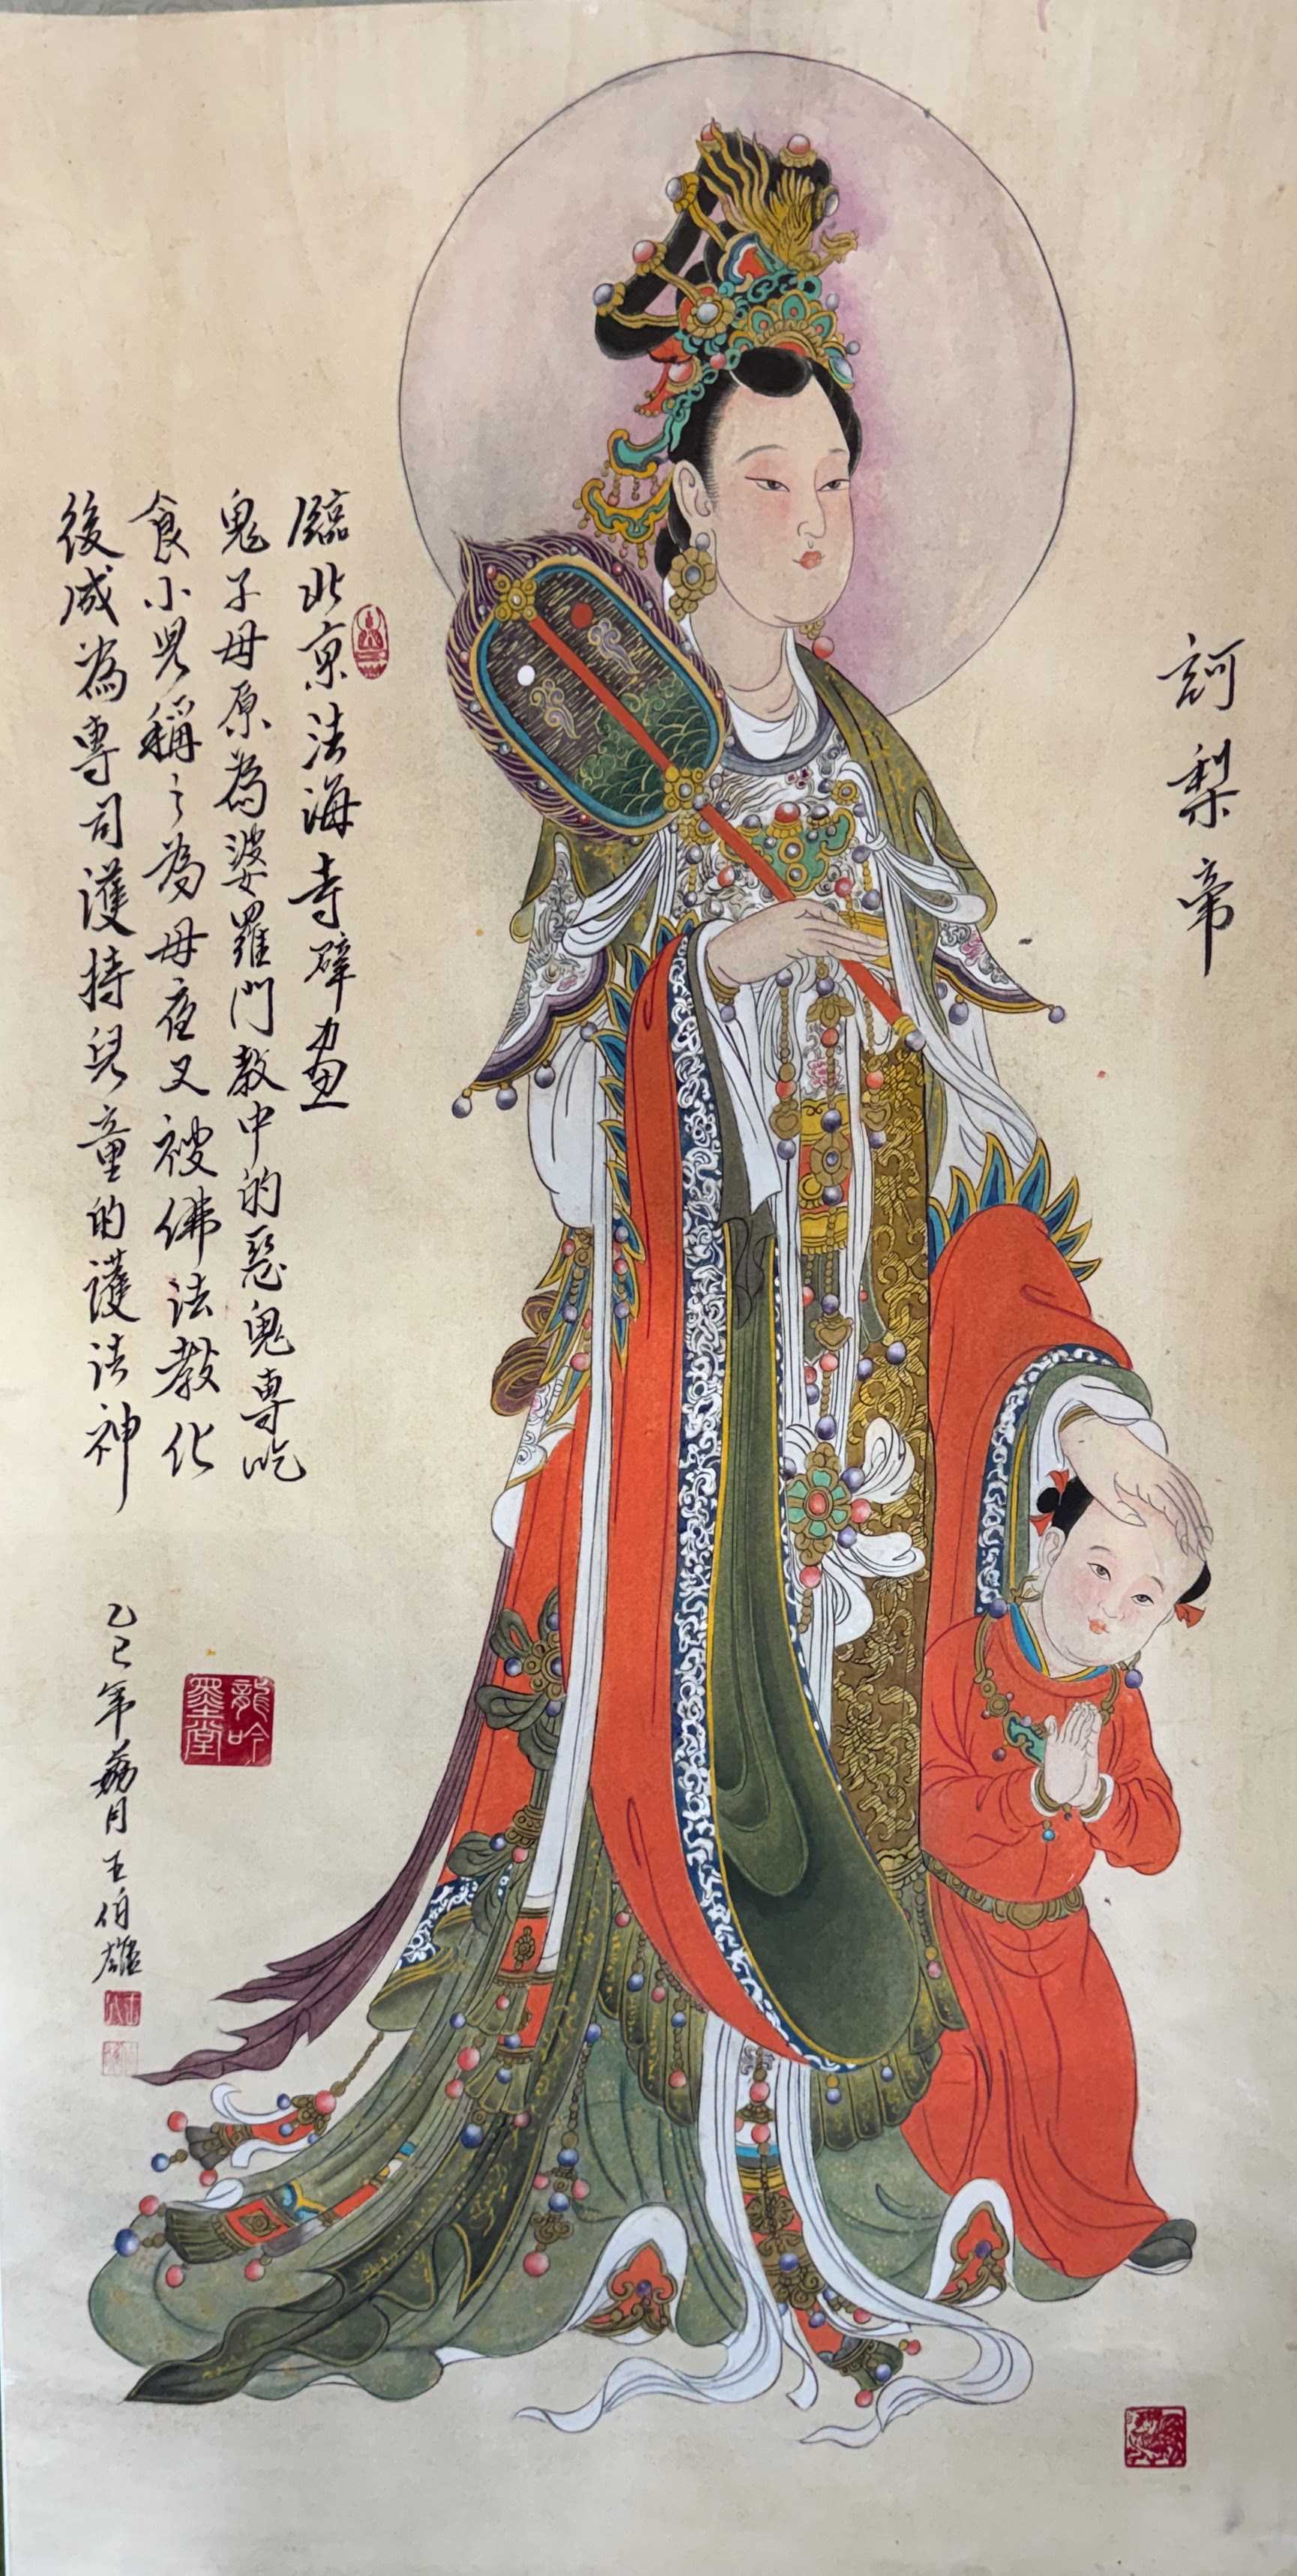 訶梨帝
臨北京法海寺壁畫
鬼子母原為婆羅門教中的惡鬼專吃
食小兒稱之為母夜叉被佛法教化
後成為專司護持兒童的護法神
乙巳年荔月王伯雄
龍吟
墨堂